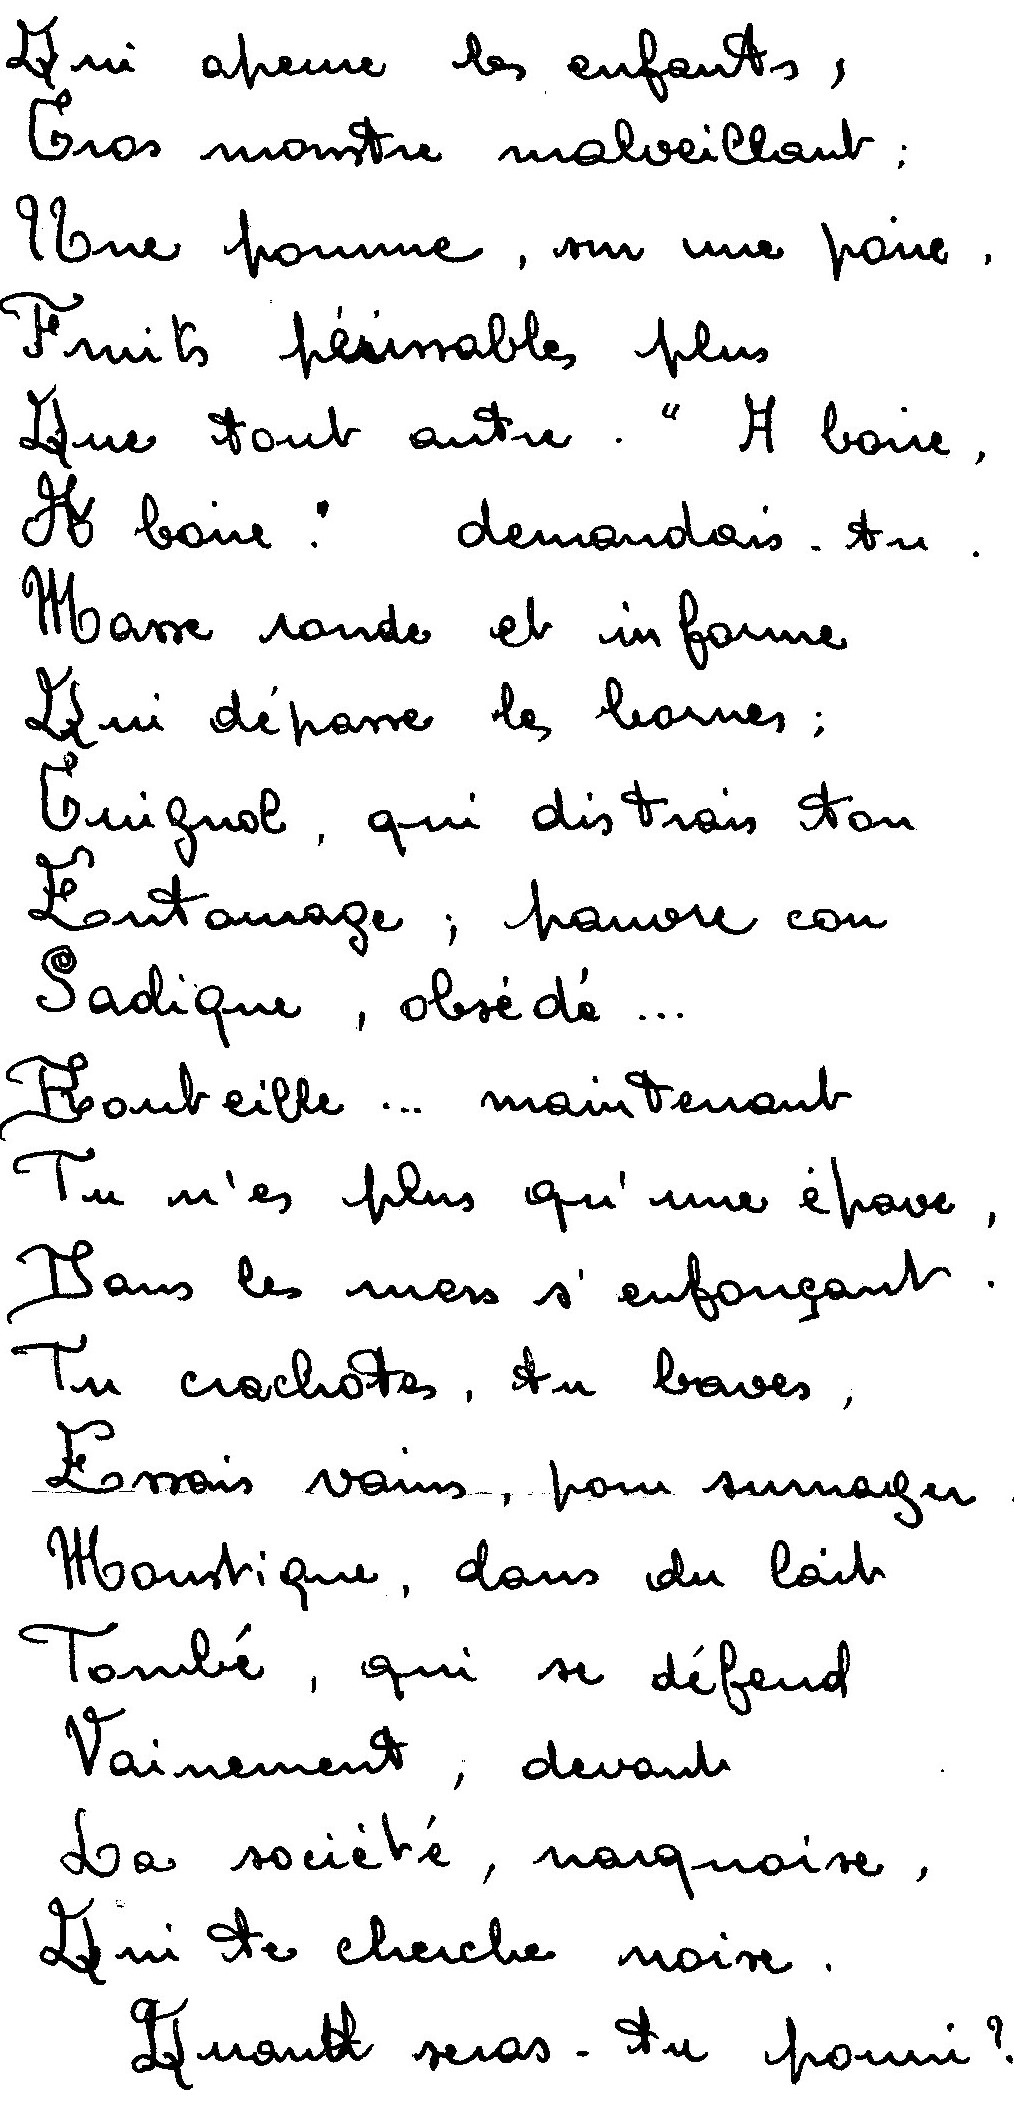 Qui apeure les enfants,
Gros monstre malveillant ;
Une pomme, sur une poire,
Fruits périssables plus
Que tout autre. " A boire,
A boire ! demandais-tu.
Masse ronde et informe
Qui dépasse les bornes ;
Guignol, qui distrais ton
Entourage ; pauvre con
Sadique, obsédé ...
Bouteille ... maintenant
Tu n'es plus qu'une épave,
Dans les mers s'enfonçant.
Tu crachotes, tu baves,
Essais vains, pour surnager.
Moustique, dans du lait
Tombé, qui se défend
Vainement, devant
La société, narquoise,
Qui te cherche noise.
Quand seras-tu pourri ?